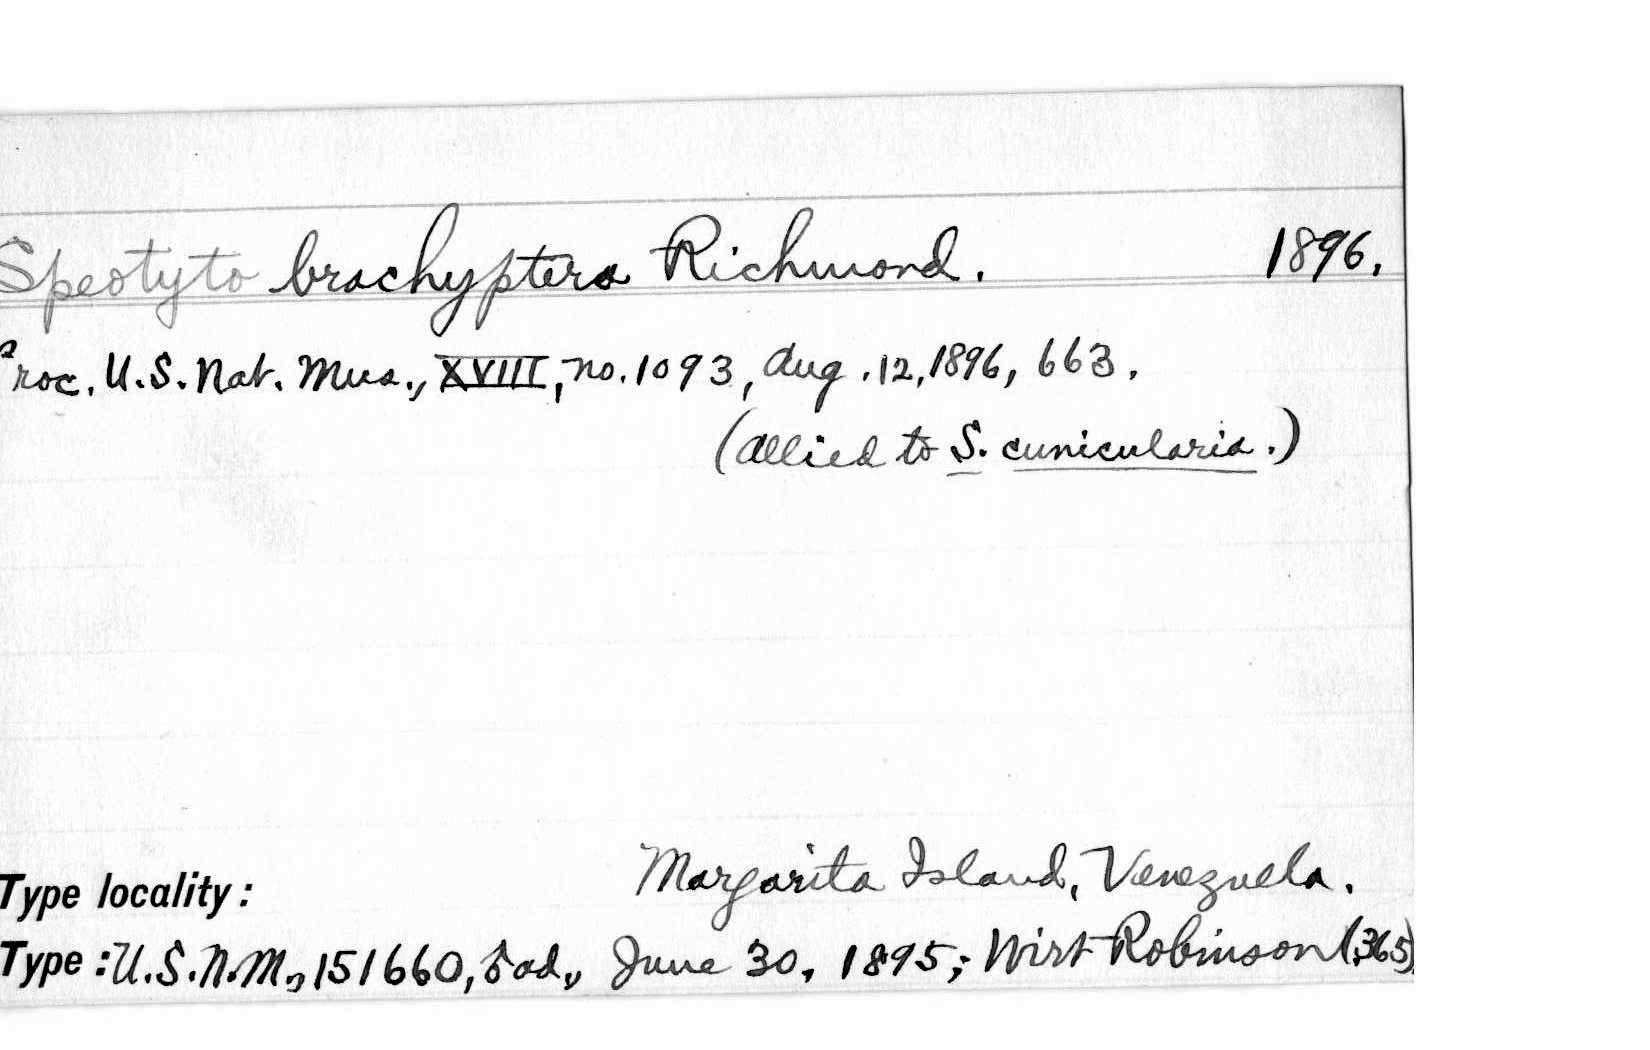 Speotyto brachyptera Richmond. 1896.
Proc. U.S. Nat. Mus., XVIII, no. 1093, Aug. 12, 1896, 663.
(Allied to S. cunicularia.)
Type locality: Margarita Island, Venezuela.
Type: U.S.N.M., 151660, ♂ ad., June 30, 1895; Wirt Robinson (365)